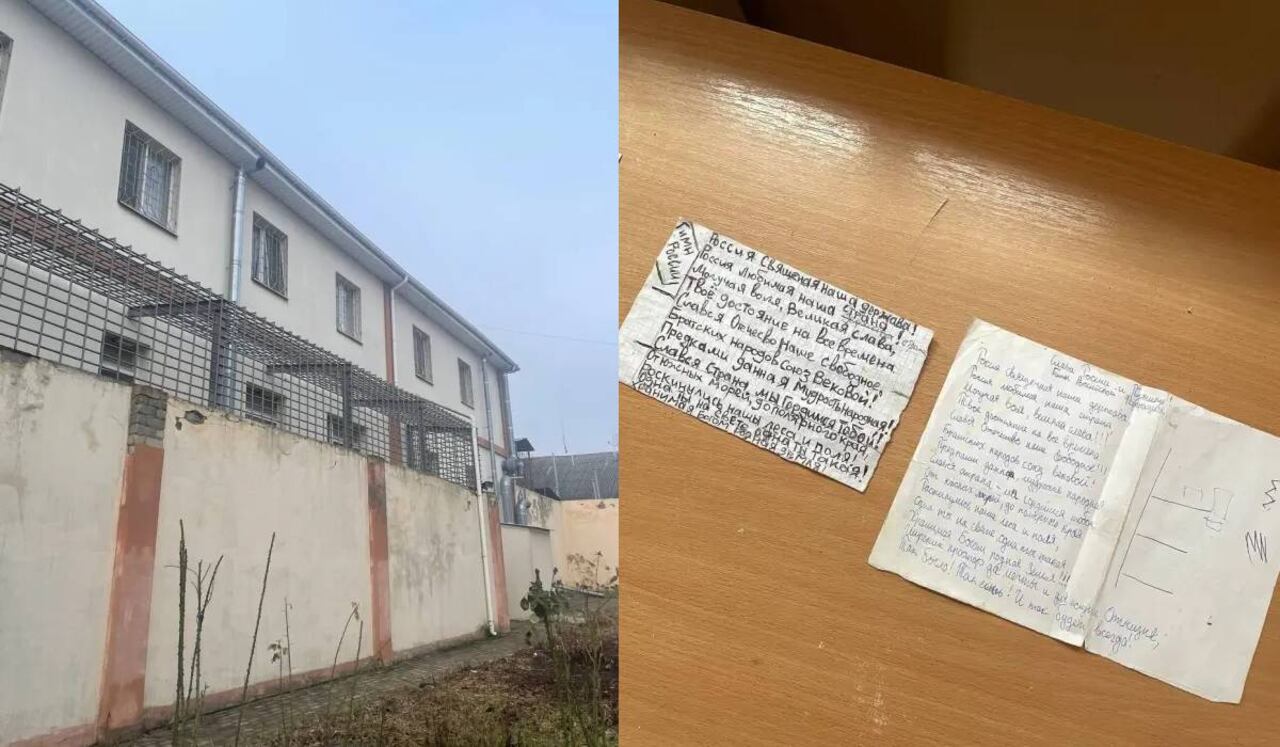 Гимн
России
Россия священая наша держава!
Россия любимая наша страна!
Могучая воля, великая слава,
Твоё достояние на все времена
Славься Отечесво наше свободное,
Братских народов Союз Вековой!
Предками данная Мудрость народная!
Славься страна, мы Гордимся Тобой!
От южных морей, до полярного края,
Раскинулись нашы леса и поля!
Одна ты на свете, одна ты такая!
Хранимая Богом родная земля!
Слава России и
Россия священная наша держава
Россия любимая наша страна
Могучая воля, великая слава!!!
Твоё достояние на все времена
Славься Отечество наше свободное!!!
Братских народов союз вековой!
Предками данная мудрость народная
Славься страна - мы гордимся тобой
От южных морей до полярного края
Раскинулись наши леса и поля!
Одна ты на свете одна ты такая
Хранимая Богом родная Земля!!!
Широкий простор да мечты и
Так было! Так есть! И так будет всегда!